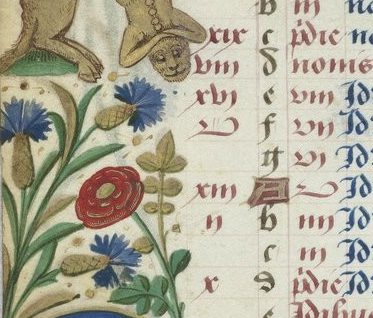 b iii no
xix c pdie no
viii d nonis
xvi e viii Id
v f vii Id
g vi Id
xiii A v Id
ii b iiii Id
c iii Id
x d pdie Id
e Idibus